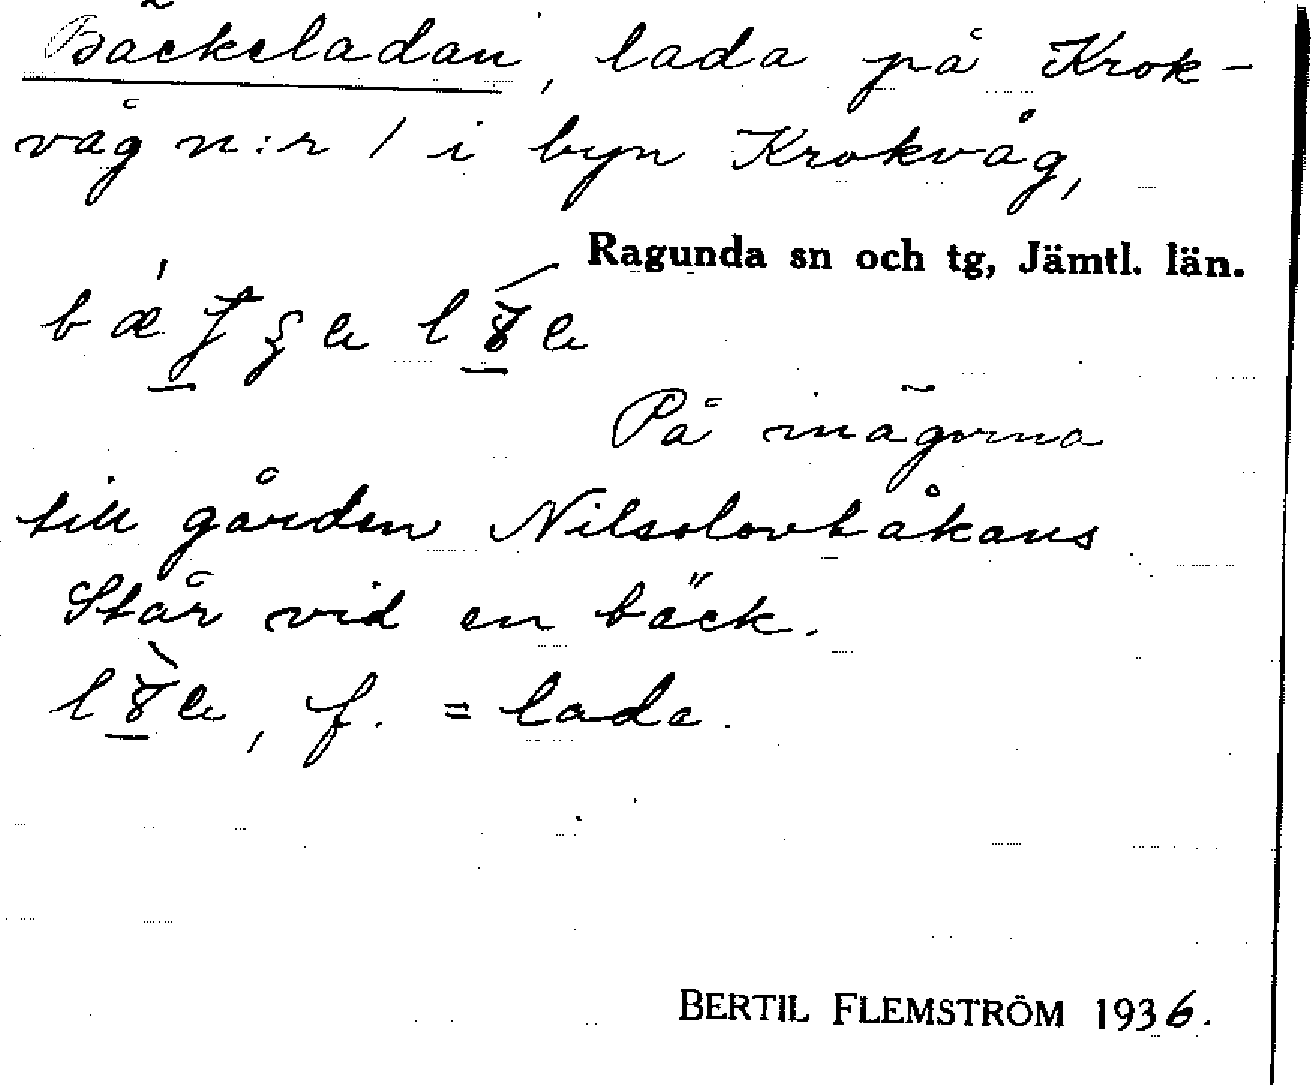 Bäckeladan, lada på Krok-
våg n:r 1 i byn Krokvåg,
Ragunda sn och tg, Jämtl. län.
På inägorna
till gården Nilsolovhåkans
Står vid en bäck.
f. = lada.
BERTIL FLEMSTRÖM 1936.